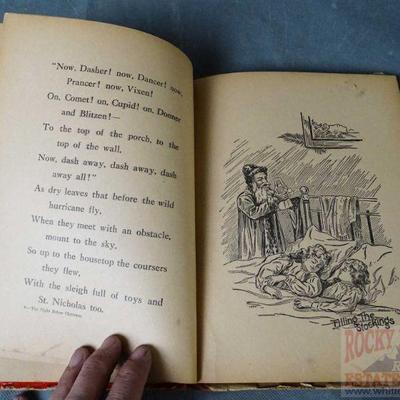 "Now, Dasher! now, Dancer! now,
Prancer! now, Vixen!
On, Comet! on, Cupid! on, Donner
and Blitzen!—
To the top of the porch, to the
top of the wall.
Now, dash away, dash away, dash
away all!"
As dry leaves that before the wild
hurricane fly,
When they meet with an obstacle,
mount to the sky,
So up to the housetop the coursers
they flew,
With the sleigh full of toys and
St. Nicholas too.
The Night Before Christmas.
Filling The
Stockings
ROCKY
ESTATE
www.whitm